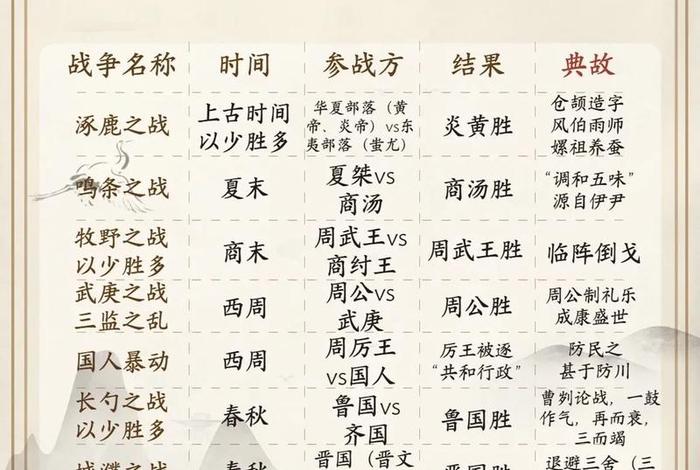 战争名称 时间 参战方 结果 典故
涿鹿之战
上古时间
以少胜多
华夏部落（黄
帝、炎帝）vs东
夷部落（蚩尤）
炎黄胜
仓颉造字
风伯雨师
嫘祖养蚕
鸣条之战
夏末
夏桀vs
商汤
商汤胜
“调和五味”
源自伊尹
牧野之战
以少胜多
商末
周武王vs
商纣王
周武王胜
临阵倒戈
武庚之战
三监之乱
西周
周公vs
武庚
周公胜
周公制礼乐
成康盛世
国人暴动
西周
周厉王
vs国人
厉王被逐
“共和行政”
防民之
甚于防川
长勺之战
以少胜多
春秋
鲁国vs
齐国
鲁国胜
曹刿论战，一鼓
作气，再而衰，
三而竭
城濮之战
春秋
晋国（晋文
晋国胜
退避三舍（三